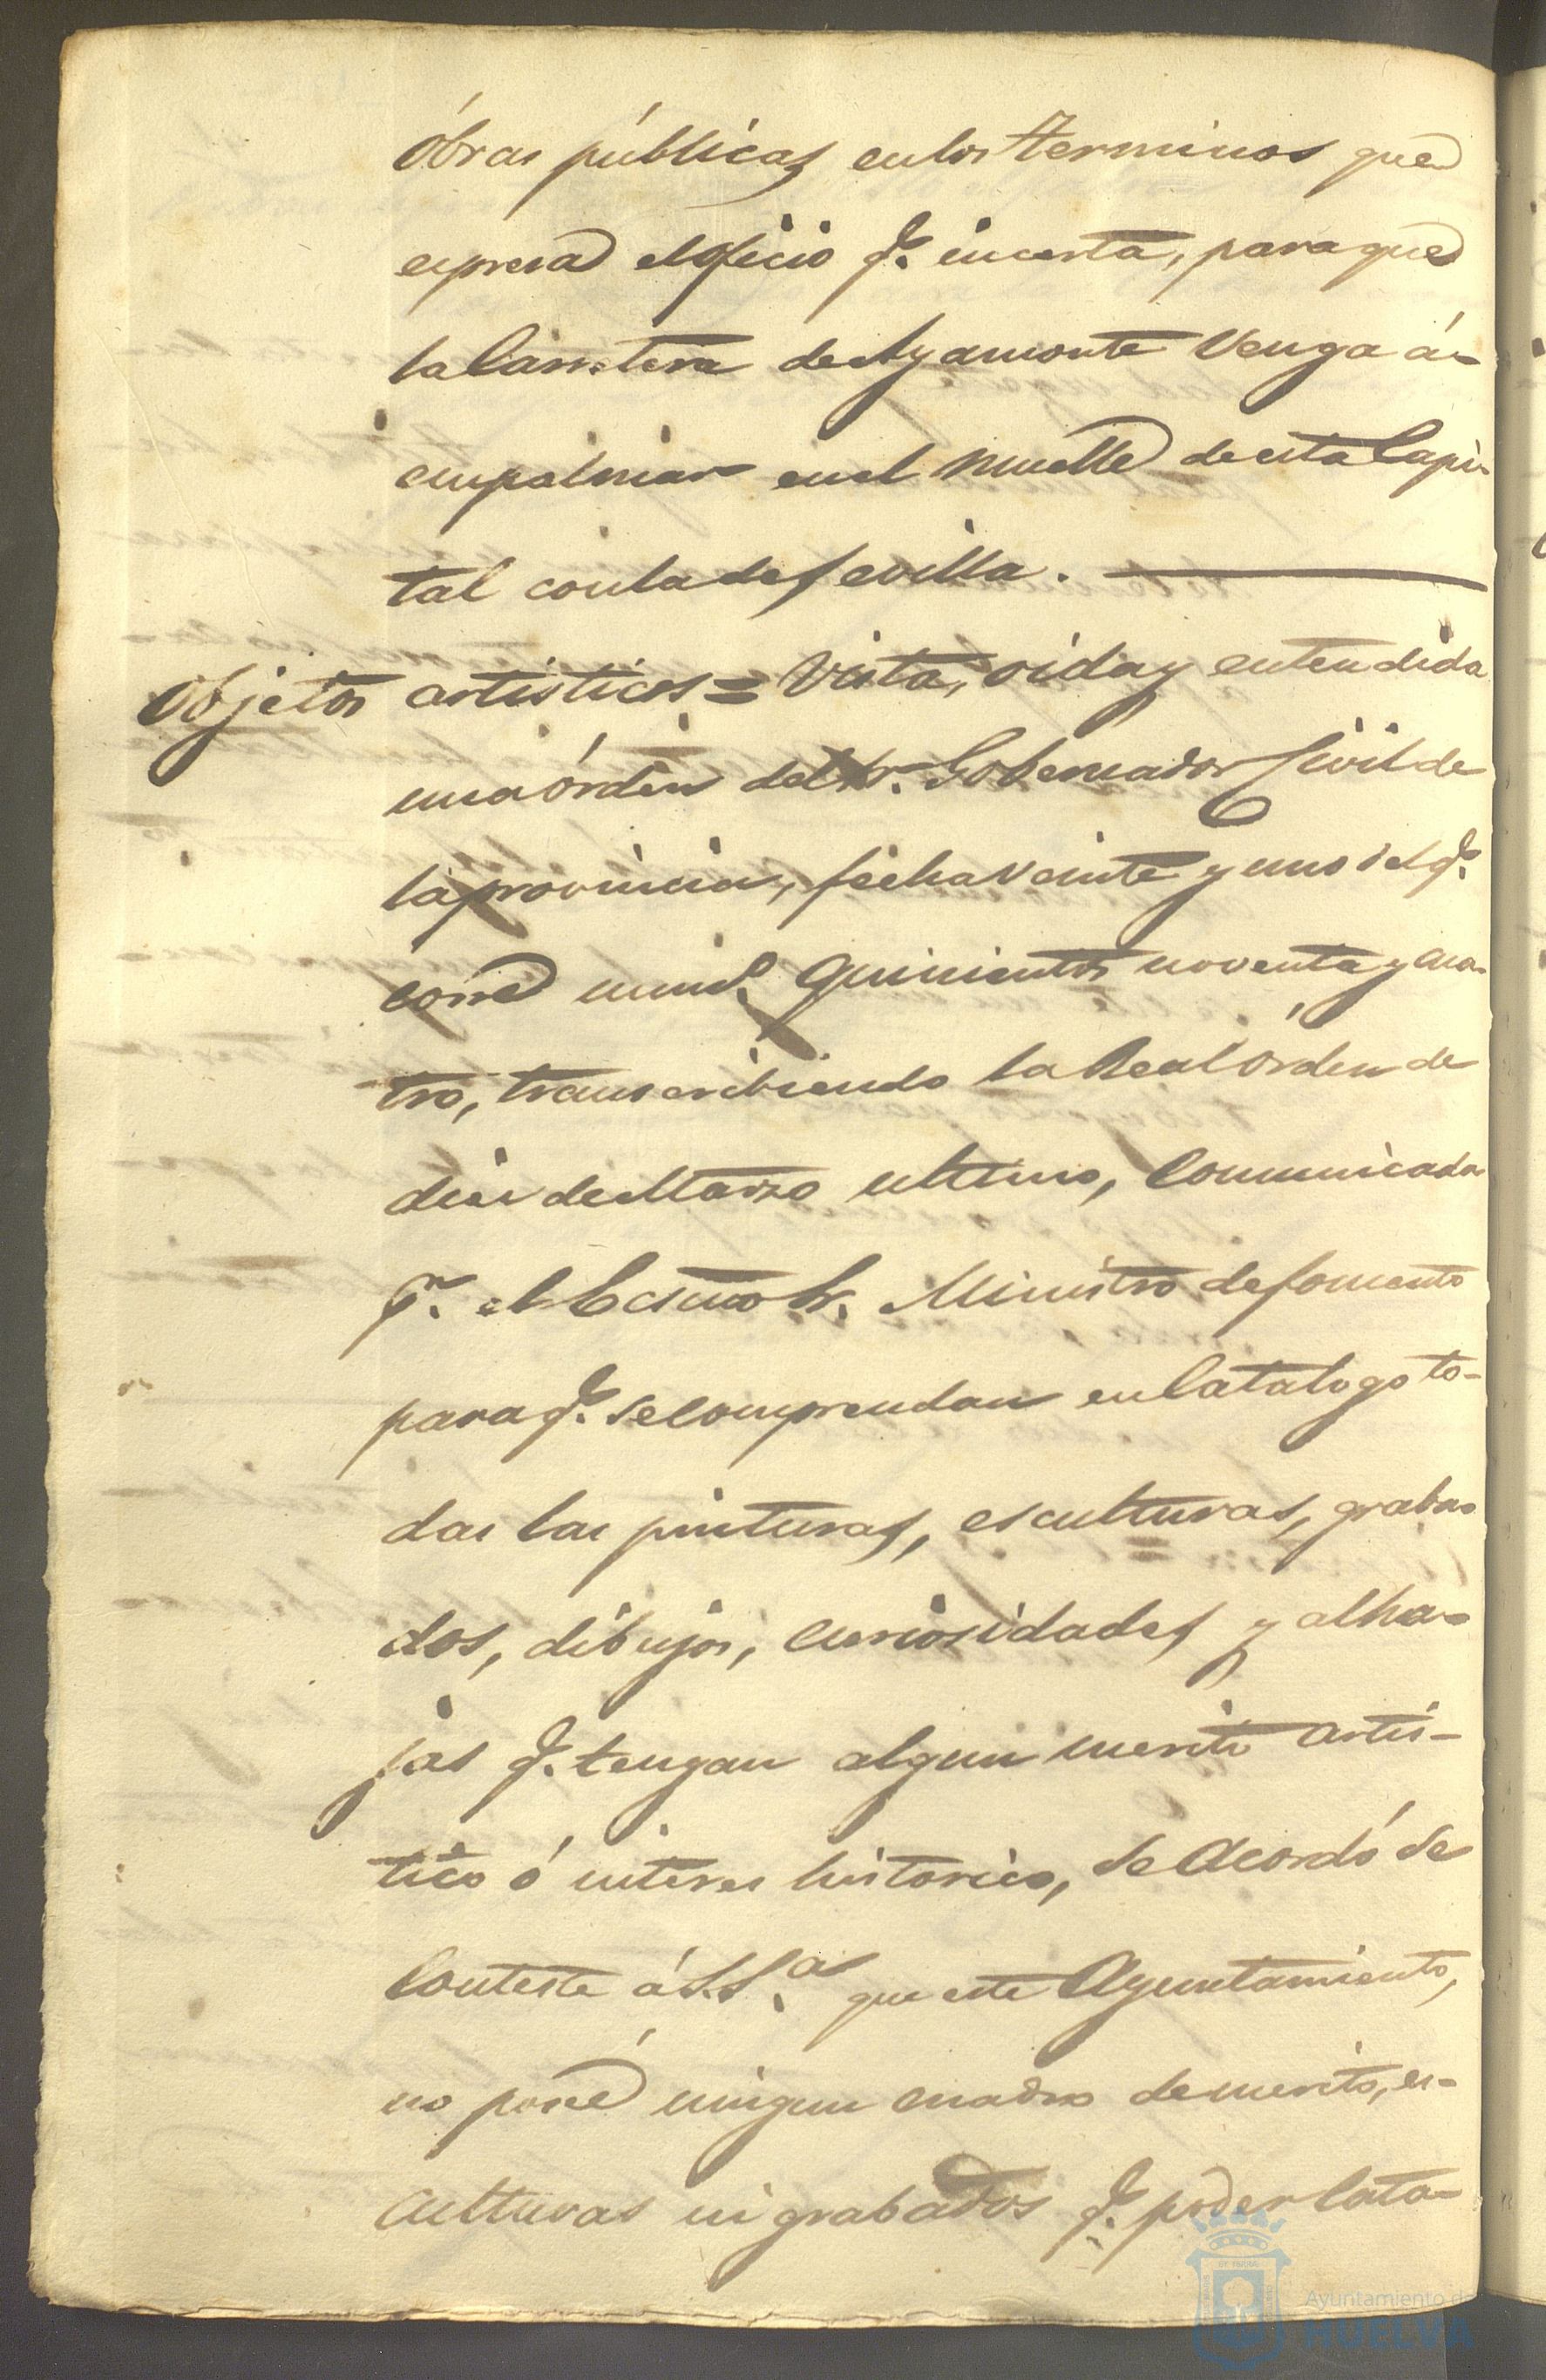 óbras públicas en los terminos que
espresa el oficio q.e incerta, para que
la Carretera de Ayamonte Venga á-
empalmar en el Muelle de esta Capi-
tal con la de Sevilla.
Objetos artisticos = Vista, oida y entendida
una órden del Sr. Gobernador Civil de
la provincia, fecha veinte y uno del q.e
corre num.o quinientos noventa y cua-
tro, transcribiendo la Real órden de
dies de Marzo ultimo, Comunicada
p.r el Ecsmo Sr. Ministro de fomento
para q.e se comprendan en Catalogo to-
das las pinturas, esculturas, graba-
dos, dibujos, curiosidades y alha-
jas q.e tengan algun merito artis-
tico ó interes historico, se Acordó se
Conteste á S.S.a que este Ayuntamiento,
no poseé ningun cuadro de merito, es-
culturas ni grabados q.e poder Cata-
Ayuntamiento de
HUELVA